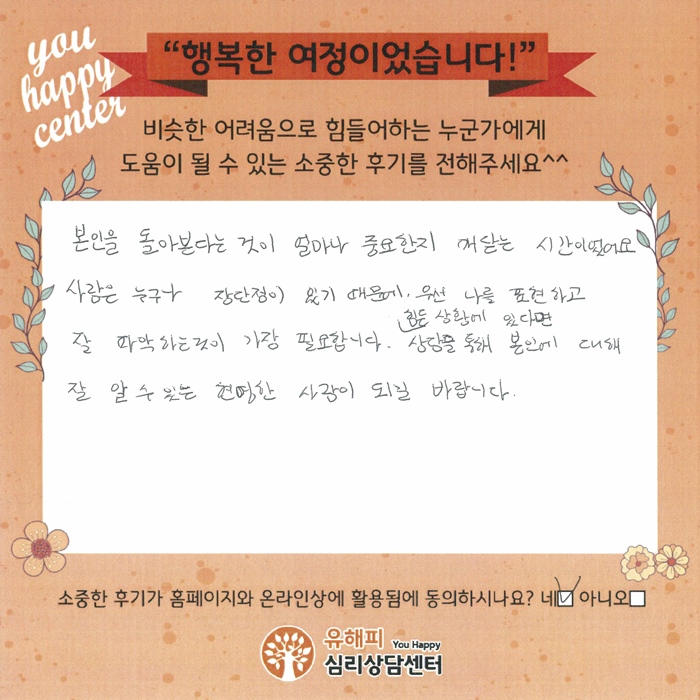 you
happy
center
“행복한 여정이었습니다!”
비슷한 어려움으로 힘들어하는 누군가에게
도움이 될 수 있는 소중한 후기를 전해주세요^^
본인을 돌아본다는 것이 얼마나 중요한지 깨닫는 시간이었어요
사람은 누구나 장단점이 있기 때문에, 우선 나를 표현하고
힘든 상황에 있다면
잘 파악하는것이 가장 필요합니다. 상담을 통해 본인에 대해
잘 알 수 있는 현명한 사람이 되길 바랍니다.
소중한 후기가 홈페이지와 온라인상에 활용됨에 동의하시나요? 네 아니오
유해피 You Happy
심리상담센터